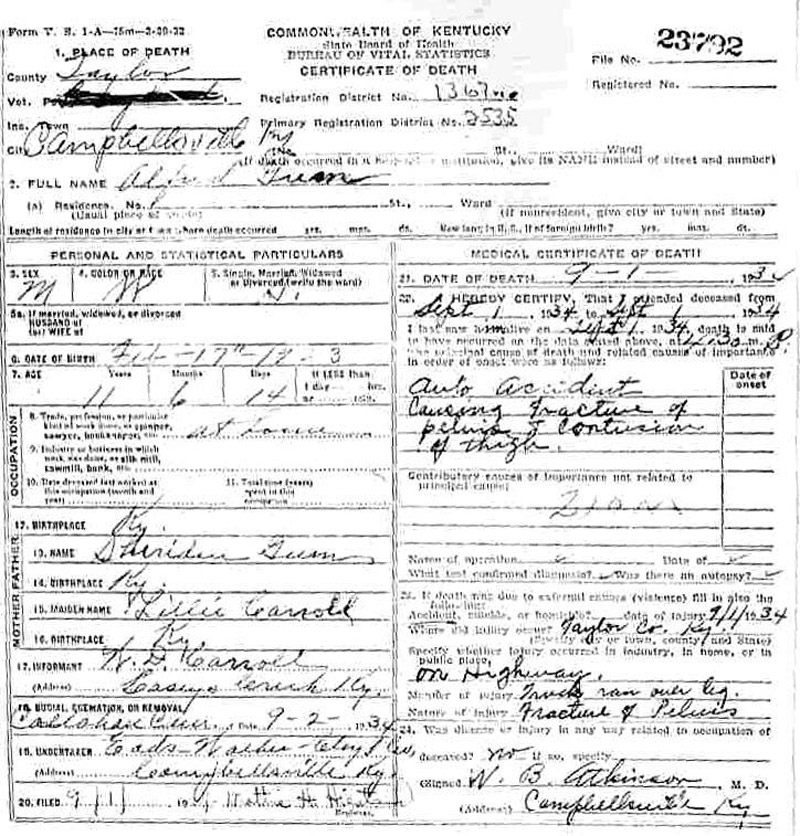 Form V. S. 1-A—75m—3-29-32
COMMONWEALTH OF KENTUCKY
State Board of Health
BUREAU OF VITAL STATISTICS
CERTIFICATE OF DEATH
File No. 23792
Registered No.
1. PLACE OF DEATH
County Taylor
Vot.
Registration District No. 1367
Inc. Town
Primary Registration District No. 2535
City Campbellsville Ky
(No. St., Ward)
(If death occurred in a hospital or institution, give its NAME instead of street and number)
2. FULL NAME Alfred Gum
(a) Residence. No. St., Ward
(Usual place of abode) (If nonresident, give city or town and State)
Length of residence in city or town where death occurred yrs. mos. ds. How long in U.S., if of foreign birth? yrs. mos. ds.
PERSONAL AND STATISTICAL PARTICULARS
3. SEX M
4. COLOR OR RACE W
5. Single, Married, Widowed or Divorced (write the word) S.
5a. If married, widowed, or divorced
HUSBAND of
(or) WIFE of
6. DATE OF BIRTH Feb - 17th
7. AGE Years Months Days If LESS than
11 6 14 1 day hrs. or min.
OCCUPATION
8. Trade, profession, or particular
kind of work done, as spinner,
sawyer, bookkeeper, etc. at home
9. Industry or business in which
work was done, as silk mill,
sawmill, bank, etc.
10. Date deceased last worked at
this occupation (month and
year)
11. Total time (years)
spent in this
occupation
12. BIRTHPLACE Ky.
FATHER
13. NAME Sheridan Gum
14. BIRTHPLACE Ky.
MOTHER
15. MAIDEN NAME Lillie Carroll
16. BIRTHPLACE Ky.
17. INFORMANT W. D. Carroll
(Address) Casey Creek Ky.
18. BURIAL, CREMATION, OR REMOVAL
Callahan Cem. Date 9-2- 1934
19. UNDERTAKER
(Address) Campbellsville Ky.
20. FILED Mottie H.
Registrar.
MEDICAL CERTIFICATE OF DEATH
21. DATE OF DEATH 9-1- 1934
22. I HEREBY CERTIFY, That I attended deceased from
Sept 1 1934 to Sept 1 1934
I last saw him alive on Sept 1, 1934, death is said
to have occurred on the date stated above, at 4:30 m. P.
The principal cause of death and related causes of importance
in order of onset were as follows:
Date of onset
Auto Accident
Causing fracture of
pelvis & contusion
of thigh.
Contributory causes of importance not related to
principal cause:
Name of operation Date of
What test confirmed diagnosis? Was there an autopsy?
23. If death was due to external causes (violence) fill in also the
following:
Accident, suicide, or homicide? date of injury 9/1/1934
Where did injury occur? Taylor Co. Ky.
(Specify city or town, county, and State)
Specify whether injury occurred in industry, in home, or in
public place,
on Highway.
Manner of injury Truck ran over leg.
Nature of injury Fracture of Pelvis
24. Was disease or injury in any way related to occupation of
deceased? no If so, specify
(Signed) W. B. Atkinson M. D.
(Address) Campbellsville Ky